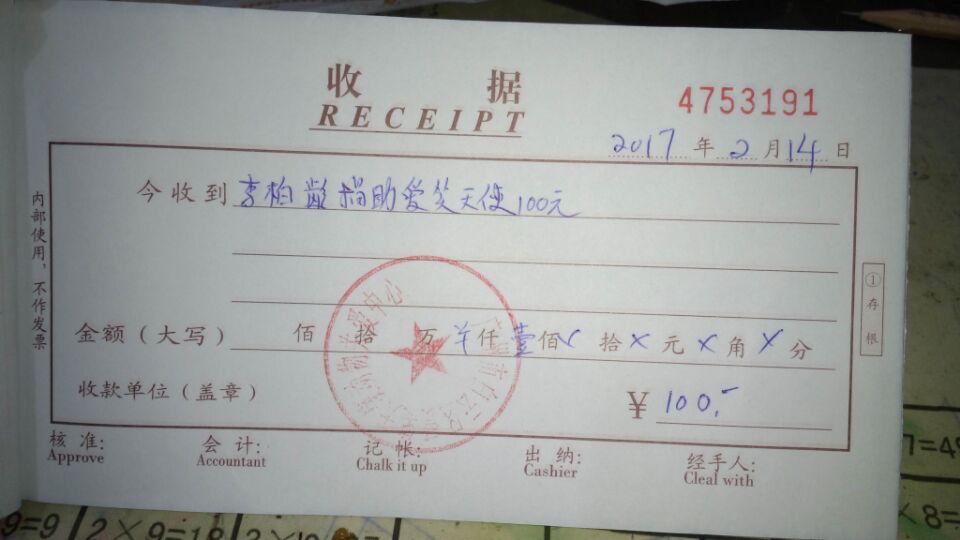 收 据
RECEIPT
4753191
2017 年 2 月 14 日
今收到 李柏龄捐助爱笑天使100元
金额（大写） 佰 拾 万 仟 壹佰 拾 元 角 分
收款单位（盖章） ¥ 100.-
核 准: 会 计: 记 帐: 出 纳: 经手人:
Approve Accountant Chalk it up Cashier Cleal with
内部使用，不作发票
①存根
9=9 2×9=18